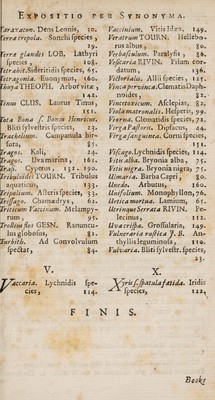 EXPOSITIO PER SYNONYMA.
Taraxacon. Dens Leonis, 10.
Terra crepola. Sonchi species,
19.
Terra glandes LOB, Lathyri
species, 108.
Tetrahit. Sideritidis species, 65.
Tetragonia. Euonymus, 160.
Thuya THEOPH. Arbor vitæ,
142.
Tinus CLUS. Laurus Tinus,
151.
Tota Bona s. Bonus Henricus.
Bliti sylvestris species, 23.
Trachelium. Campanula hirsuta,
85.
Tragos. Kali, 24.
Tragos. Uva marina, 161.
Trasi. Cyperus, 132. 190.
Tribuloides TOURN. Tribulus
aquaticus, 133.
Tripolium. Asteris species, 3.
Trissago. Chamædrys, 61.
Triticum Vaccinum. Melampyrum,
95.
Trollius flos GESN. Ranunculus
globosus, 82.
Turbith. Ad Convolvulum
spectat, 84.
V.
Vaccaria. Lychnidis species,
114.
Vaccinium. Vitis Idæa, 149.
Veratrum TOURN. Helleborus
albus, 80.
Verbasculum. Paralysis, 86.
Vesicaria RIVIN. Pisum cordatum,
136.
Victorialis. Allii species, 125.
Vinca pervinca. Clematis Daphnoides,
81.
Vincetoxicum. Asclepias, 82.
Viola matronalis. Hesperis, 99.
Viorna. Clematidis species, 71.
Virga Pastoris. Dipsacus, 44.
Virga sanguinea. Corni species,
151.
Viscago. Lychnidis species, 114.
Vitis alba. Bryonia alba, 75.
Vitis nigra. Bryonia nigra, 75.
Ulmaria. Barba Capri, 80.
Unedo. Arbutus, 160.
Unifolium. Monophyllon, 76.
Urtica mortua. Lamium, 61.
Utriusque Serrata RIVIN. Pelecinus,
112.
Uva crispa. Grossularia, 149.
Vulneraria rustica J. B. Anthyllis
leguminosa, 110.
Vulvaria. Bliti sylvestr. species,
23.
X.
Xyris s. spatula fœtida. Iridis
species, 122,
FINIS.
Book: